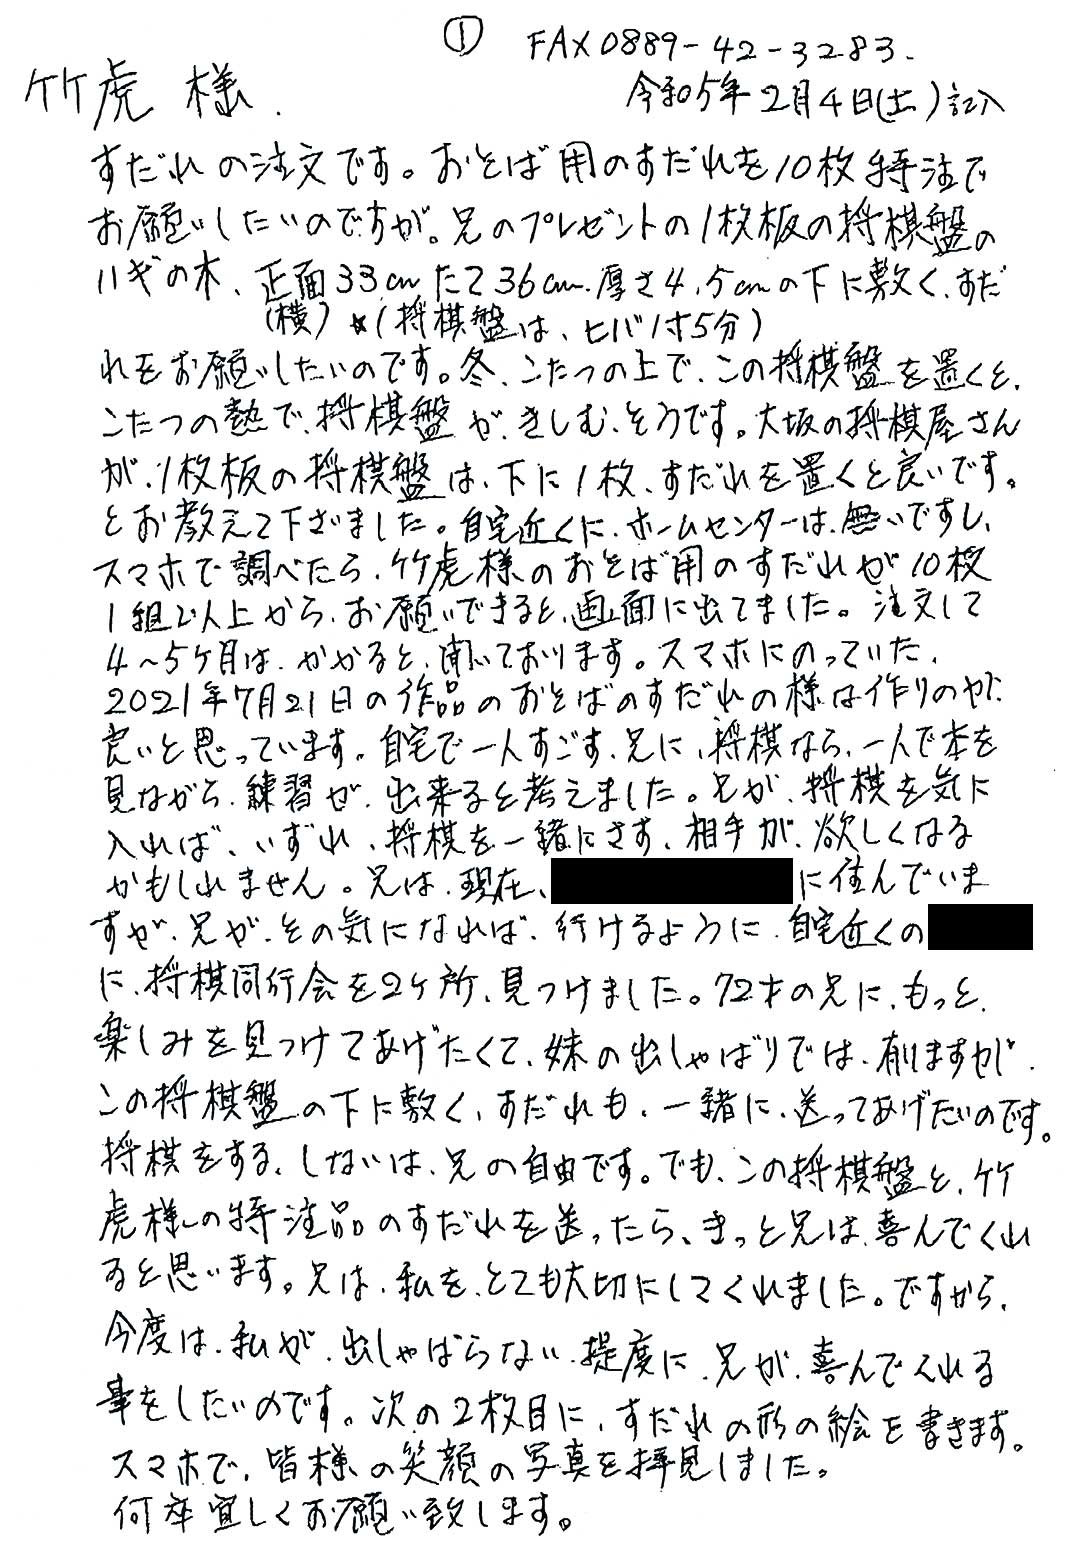 ① FAX0889-42-3283.
竹虎 様.
令和5年2月4日(土)記入
すだれの注文です。おそば用のすだれを10枚特注で
お願いしたいのですが。兄のプレゼントの1枚板の将棋盤の
ハギの木、正面33cmたて36cm.厚さ4.5cmの下に敷く、すだ
(横) ★(将棋盤は、ヒバ1寸5分)
れをお願いしたいのです。冬、こたつの上で、この将棋盤を置くと、
こたつの熱で、将棋盤が、きしむ、そうです。大坂の将棋屋さん
が、1枚板の将棋盤は、下に1枚、すだれを置くと良いです。
とお教えて下ざました。自宅近くに、ホームセンターは、無いですし、
スマホで調べたら、竹虎様のおそば用のすだれが10枚
1組以上から、お願いできると、画面に出てました。注文して
4〜5ケ月は、かかると、聞いております。スマホにのっていた、
2021年7月21日の作品のおそばのすだれの様は作りのが、
良いと思っています。自宅で一人すごす、兄に、将棋なら、一人で本を
見ながら、練習が、出来ると考えました。兄が、将棋を気に
入れば、いずれ、将棋を一緒にさす、相手が、欲しくなる
かもしれません。兄は、現在、に住んでいま
すが、兄が、その気になれば、行けるように、自宅近くの
に、将棋同行会を2ケ所、見つけました。72才の兄に、もっと、
楽しみを見つけてあげたくて、妹の出しゃばりでは、有りますが、
この将棋盤の下に敷く、すだれも、一緒に、送ってあげたいのです。
将棋をする、しないは、兄の自由です。でも、この将棋盤と、竹
虎様の特注品のすだれを送ったら、きっと兄は、喜んでくれ
ると思います。兄は、私を、とても大切にしてくれました。ですから、
今度は、私が、出しゃばらない、提度に、兄が、喜んでくれる
事をしたいのです。次の2枚目に、すだれの形の絵を書きます。
スマホで、皆様の笑顔の写真を拝見しました。
何卒宜しくお願い致します。